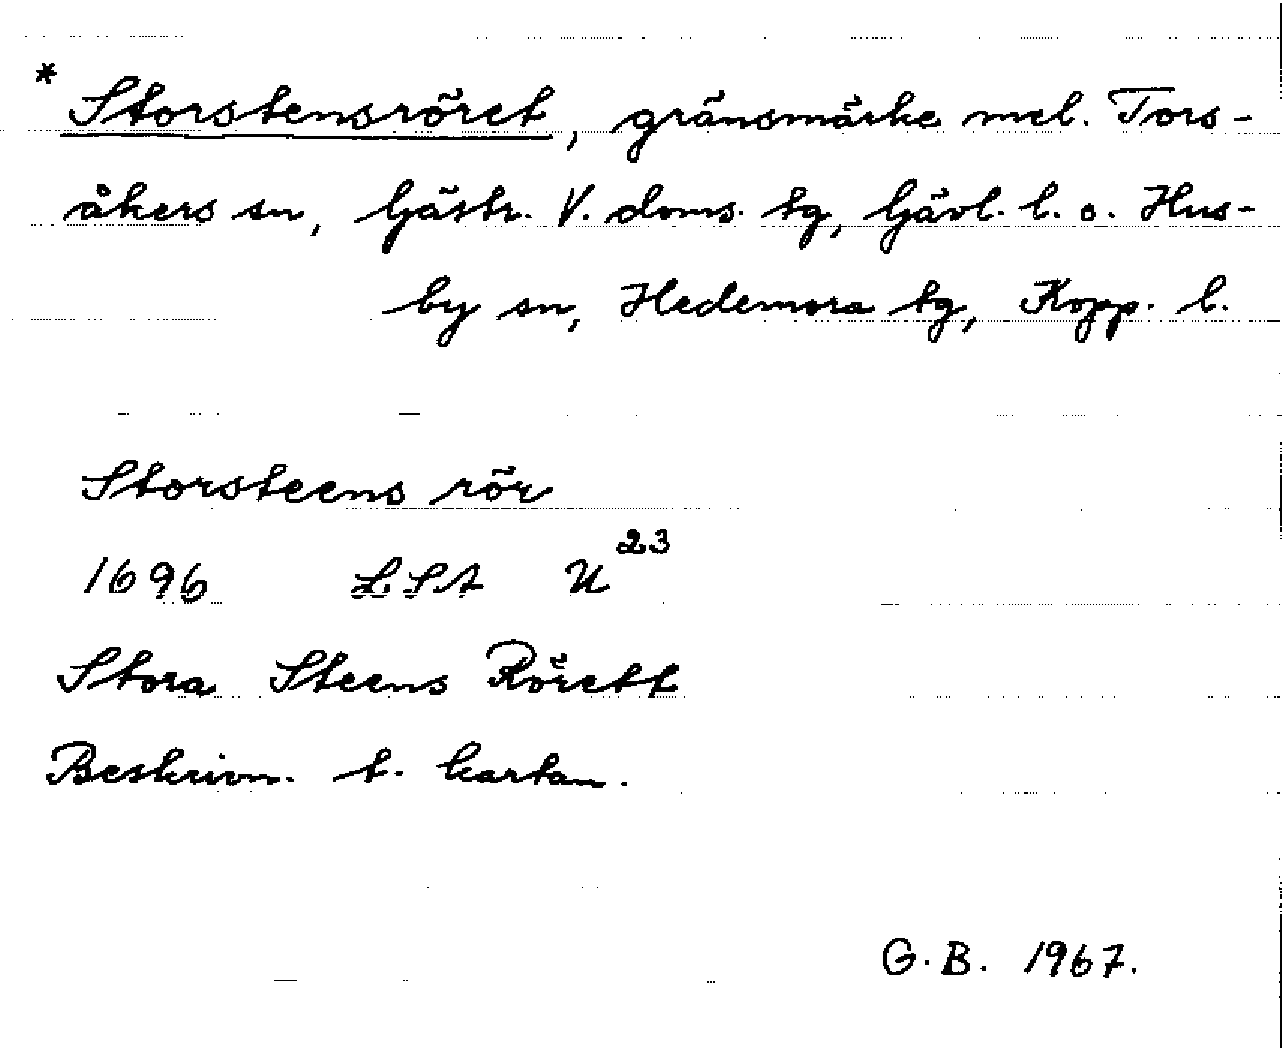 * Storstensröret, gränsmärke mel. Tors-
åkers sn, Gästr. V. doms. tg, Gävl. l. o. Hus-
by sn, Hedemora tg, Kopp. l.
Storsteens rör
1696 LSA U23
Stora Steens Rörett
Beskrivn. t. kartan.
G.B. 1967.